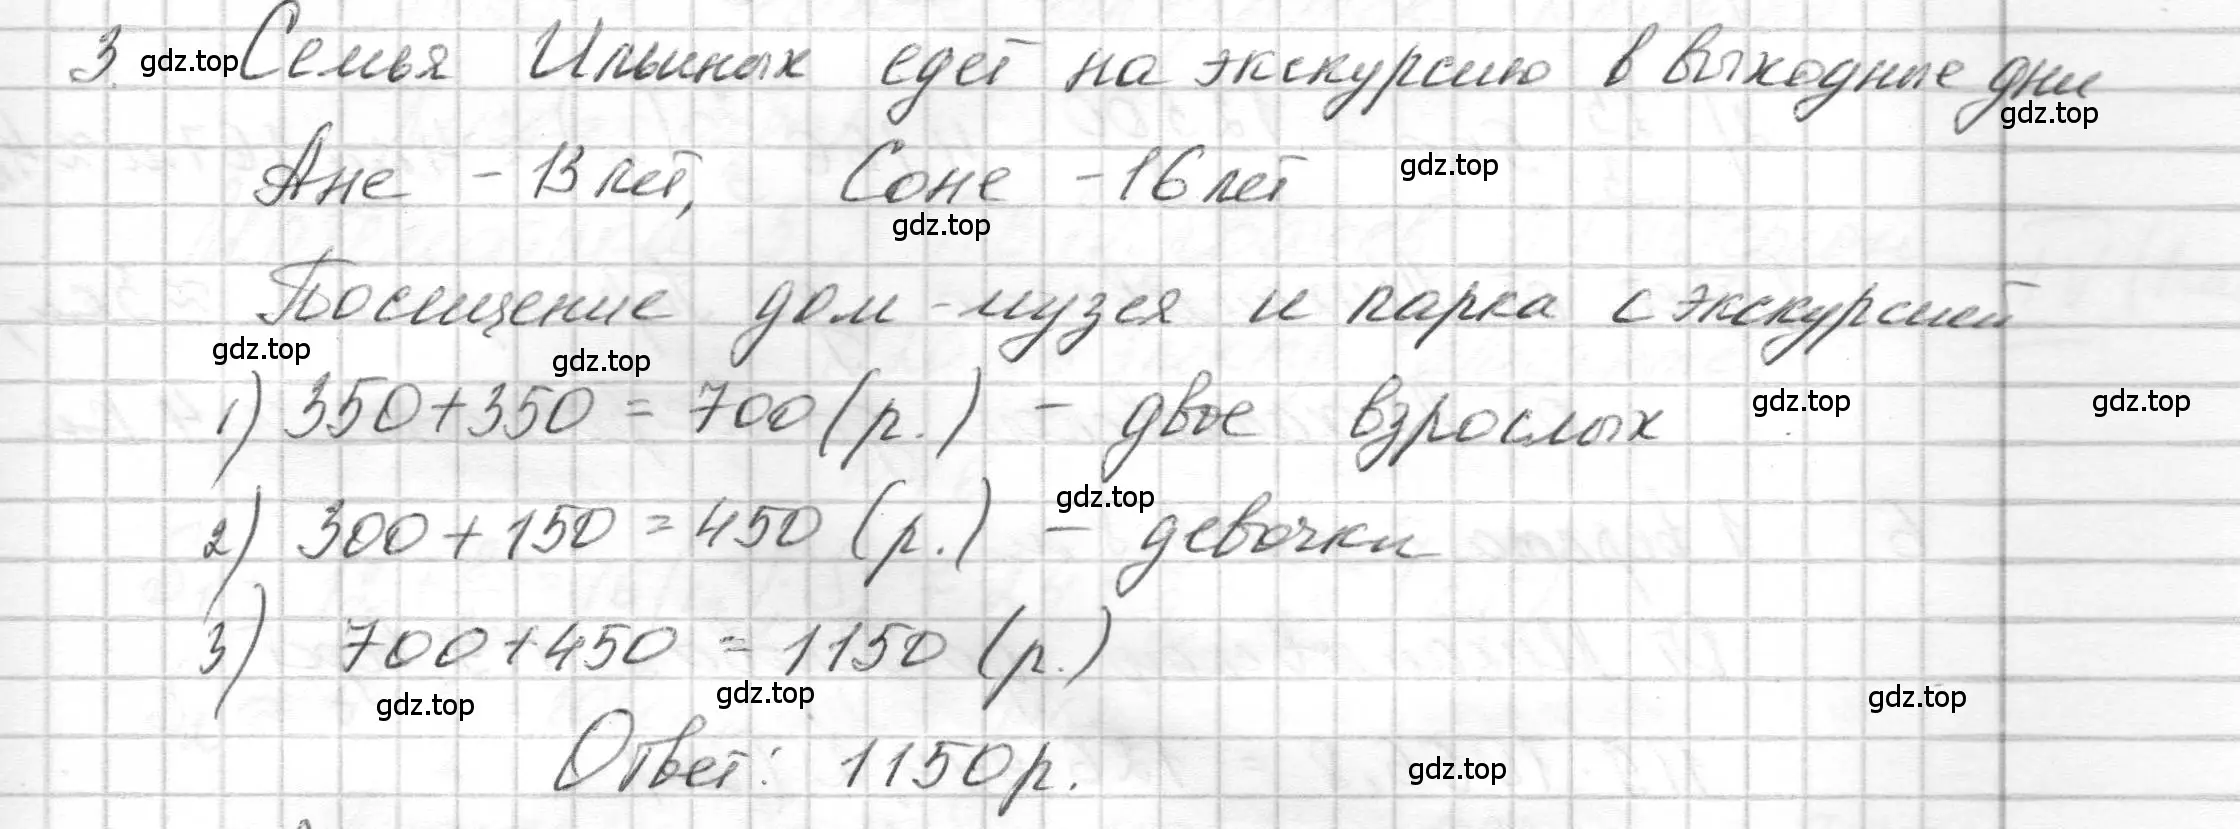 3. Семья Ильиных едет на экскурсию в выходные дни
Ане - 13 лет, Соне - 16 лет
Посещение дом-музея и парка с экскурсией
1) 350+350=700(р.) - двое взрослых
2) 300+150=450 (р.) - девочки
3) 700+450=1150 (р.)
Ответ: 1150р.
gdz.top
gdz.top
gdz.top
gdz.top
gdz.top
gdz.top
gdz.top
gdz.top
gdz.top
gdz.top
gdz.top
gdz.top
gdz.top